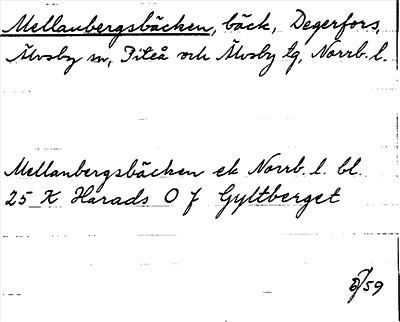 Mellanbergsbäcken, bäck, Degerfors,
Älvsby sn, Piteå och Älvsby tg, Norrb. l.
Mellanbergsbäcken ek Norrb. l. bl.
25 K Harads O f Gyltberget
/59